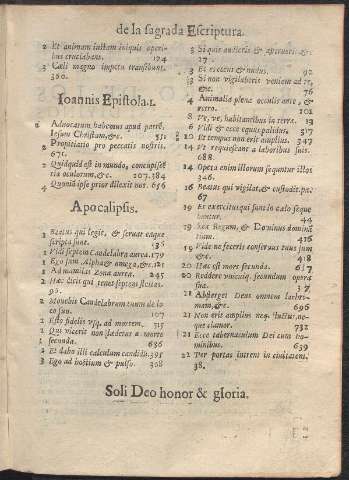 de la sagrada Escriptura.
2 Et animam iustam iniquis operibus cruciabant. 194
3 Cæli magno impetu transibunt. 360.
Ioannis Epistola.1.
Aduocatum habemus apud patrẽ, Iesum Christum,&c. 551
2 Propitiatio pro peccatis nostris. 671.
2 Quidquid est in mundo, concupiscẽtia oculorum,&c. 107.184
4 Quoniã ipse prior dilexit nos. 656
Apocalipsis.
1 Beatus qui legit, & seruat eaquæ scripta sunt. 536
1 Vidi septem Candelabra aurea. 179
1 Ego sum Alpha & omega,&c. 121
1 Ad mamillas Zona aurea. 245
2 Hæc dicit qui tenet septem stellas.
2 Mouebis Candelabrum tuum de loco suo. 107
2 Esto fidelis vsq; ad mortem. 315
2 Qui vicerit non lædetur a morte secunda. 636
2 Et dabo illi calculum candidũ. 395
3 Ego ad hostium & pulso. 368
3 Si quis audierit & aperuerit,&c. 17.
3 Et es cæcus & nudus. 92
3 Si non vigilaberis veniam ad te, &c. 76
4 Animalia plena oculis ante, & retro. 101
8 Vę, vę, habitantibus in terra. 13
6 Vidi & ecce equus palidus, 317
10 Et tempus non erit amplius. 347
14 Vt requiescant a laboribus suis. 688.
14 Opera enim illorum sequntur illos 346.
16 Beatus qui vigilat, & custodit. pag. 67
19 Et exercitus qui sunt in cælo sequebantur. 44
19 Rex Regum, & Dominus dominãtium. 416
19 Vide ne feceris conseruus tuus sum &c.
20 Hæc est mors secunda. 637
20 Reddere vnicuiq; secundum opera sua. 37
21 Absterget Deus omnem lachrimam,&c. 696
21 Non erit amplius neq; luctus, neque clamor. 732
21 Ecce tabernaculum Dei cum hominibus. 639
22 Per portas intrent in ciuitatem. 38.
Soli Deo honor & gloria.